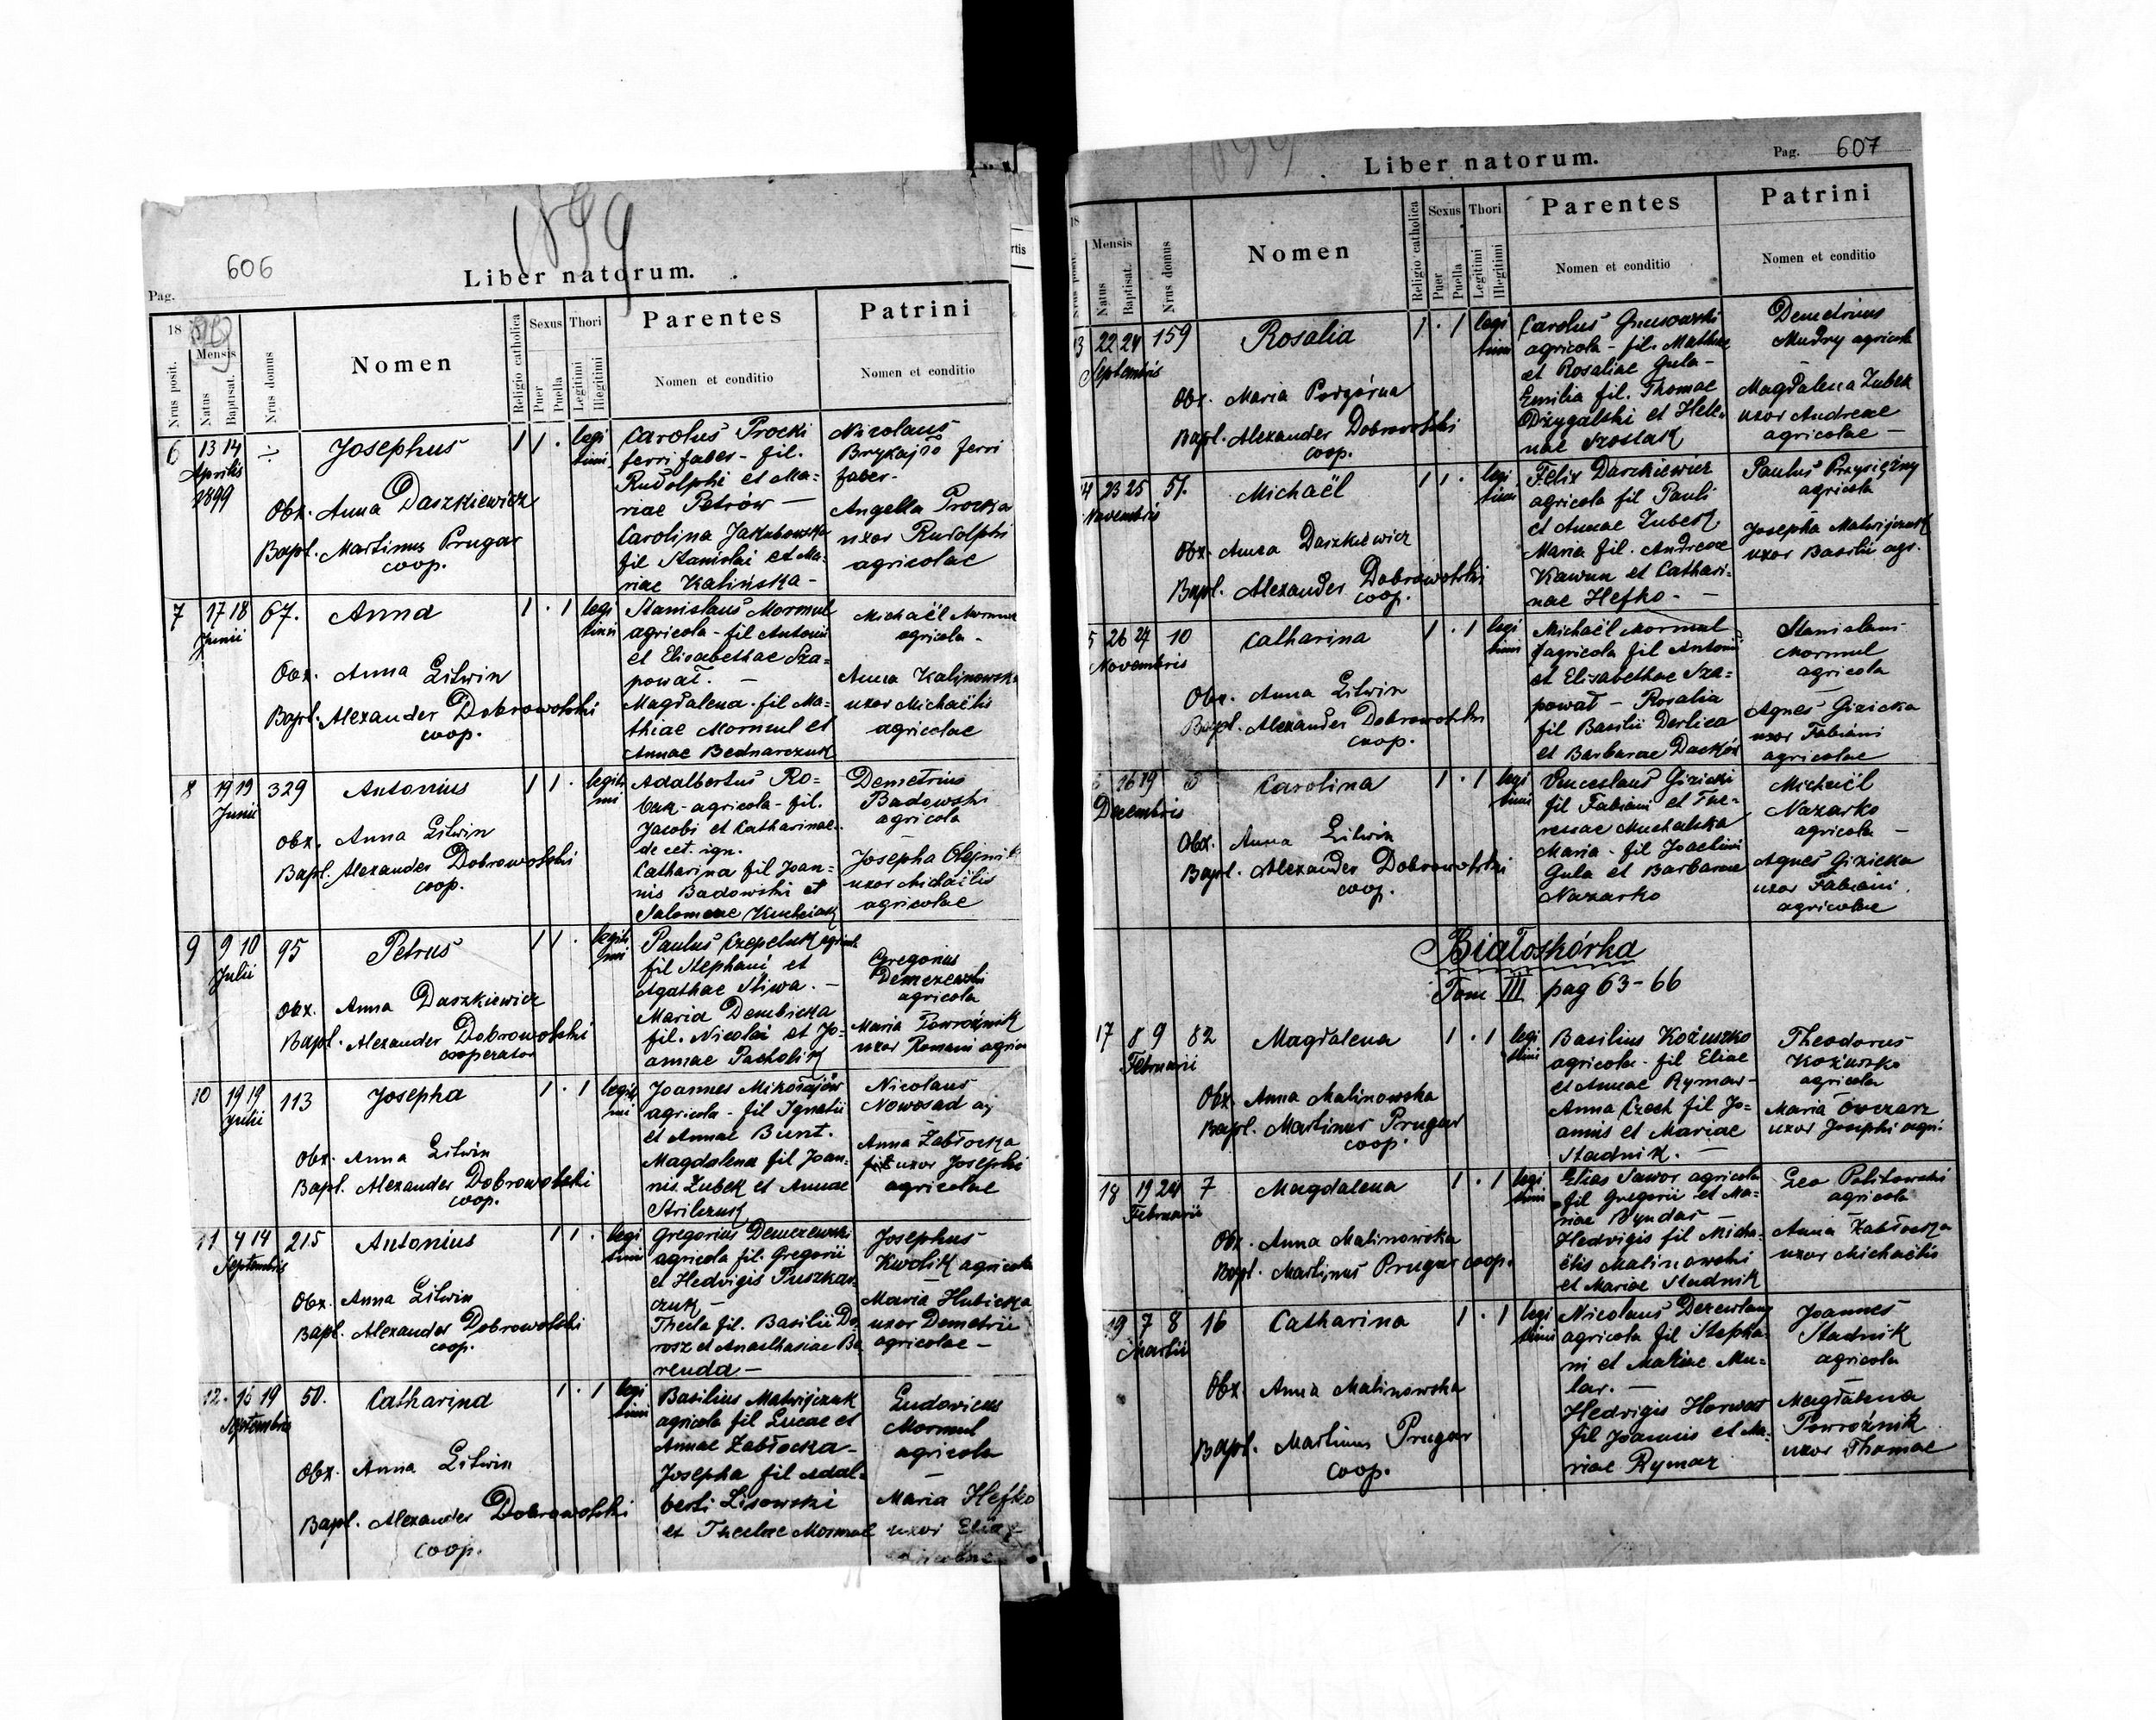 1899
606
Pag.
Liber natorum.
18 99
Nrus posit.
Mensis
Natus
Baptisat.
Nrus domus
Nomen
Religio catholica
Sexus
Puer
Puella
Thori
Legitimi
Illegitimi
Parentes
Nomen et conditio
Patrini
Nomen et conditio
6 13 14
Aprilis
1899
Josephus
1 1 .
legi
timi
Obx. Anna Daszkiewicz
Bapt. Martinus Prugar
coop.
Carolus Procki
ferri faber - fil.
Rudolphi et Ma-
riae Petrów —
Carolina Jakubowska
fil Stanislai et Ma-
riae Kalińska -
Nicolaus
ferri
faber -
Angella Procka
uxor Rudolphi
agricolae
7 17 18 67.
Junii
Anna
1 . 1
legi
timi
Obx. Anna Litwin
Bapt. Alexander Dobrowolski
coop.
Stanislaus Mormul
agricola - fil Antonii
et Elisabethae Sza-
pował. —
Magdalena - fil Ma-
thiae Mormul et
Annae Bednarczuk
Michaël
agricola -
Anna Kalinowska
uxor Michaëlis
agricolae
8 19 19 329
Junii
Antonius
1 1 .
legiti
mi
Obx. Anna Litwin
Bapt. Alexander Dobrowolski
coop.
Adalbertus Ro-
agricola - fil.
Jacobi et Catharinae
de cet. ign.
Catharina fil Joan-
nis Badowski et
Salomeae
Demetrius
Badowski
agricola
—
Josepha Olejnik
uxor Michaëlis
agricolae
9 9 10 95
Julii
Petrus
1 1 .
legiti
mi
Obx. Anna Daszkiewicz
Bapt. Alexander Dobrowolski
cooperator
Paulus Czepeluk agricola
fil Stephani et
Agathae Sliwa. —
Maria Dembicka
fil. Nicolai et Jo-
annae Pacholik
Gregorius
Demczewski
agricola
Maria Powroźnik
uxor Romani
10 19 19 113
Julii
Josepha
1 . 1
legiti
mi
Obx. Anna Litwin
Bapt. Alexander Dobrowolski
coop.
Joannes Mikołajów
agricola - fil Ignatii
et Annae Bunt.
Magdalena fil Joan-
nis Zubek et Annae
Strilczuk
Nicolaus
Nowosad
—
Anna Zabłocka
uxor Josephi
agricolae
11 4 14 215
Septembris
Antonius
1 1 .
legi
timi
Obx. Anna Litwin
Bapt. Alexander Dobrowolski
coop.
Gregorius Demczewski
agricola fil. Gregorii
et Hedvigis Puszkar-
czuk —
Thecla fil. Basilii Do-
rosz et Anasthasiae Ba
renda —
Josephus
Kwolik agricola
—
Maria Hubicka
uxor Demetrii
agricolae —
12. 16 19 50.
Septembris
Catharina
1 . 1
legi
timi
Obx. Anna Litwin
Bapt. Alexander Dobrowolski
coop.
Basilius Matwijczuk
agricola fil Lucae et
Annae Zabłocka -
Josepha fil Adal-
berti Lisowski
et Theclae Mormul
Ludovicus
Mormul
agricola
—
Maria Hefko
uxor Eliae
agricolae
1899
Liber natorum.
Pag. 607
18
Nrus posit.
Mensis
Natus
Baptisat.
Nrus domus
Nomen
Religio catholica
Sexus
Puer
Puella
Thori
Legitimi
Illegitimi
Parentes
Nomen et conditio
Patrini
Nomen et conditio
3 22 24 159
Septembris
Rosalia
1 . 1
legi
timi
Obx. Maria Podgórna
Bapt. Alexander Dobrowolski
coop.
Carolus
agricola - fil. Mathiae
et Rosaliae Gula -
Emilia fil. Thomae
Dżygalski et Hele-
nae Szostak
Demetrius
Mudry agricola
—
Magdalena Zubek
uxor Andreae
agricolae —
4 23 25 51.
Novembris
Michaël
1 1 .
legi
timi
Obx. Anna Daszkiewicz
Bapt. Alexander Dobrowolski
coop.
Felix Daszkiewicz
agricola fil Pauli
et Annae Zubek
Maria fil. Andreae
Kawun et Cathari-
nae Hefko. —
Paulus Przysiężny
agricola
Josepha Matwijczuk
uxor Basilii agr.
5 26 27 10
Novembris
Catharina
1 . 1
legi
timi
Obx. Anna Litwin
Bapt. Alexander Dobrowolski
coop.
Michaël Mormul
agricola fil Antonii
et Elisabethae Sza-
pował — Rosalia
fil Basilii Derlica
et Barbarae Dacków
Stanislaus
Mormul
agricola
—
Agnes Gizicka
uxor Fabiani
agricolae
6 16 19
Decembris
Carolina
1 . 1
legi
timi
Obx. Anna Litwin
Bapt. Alexander Dobrowolski
coop.
Venceslaus Gizicki
fil Fabiani et The-
resae Muchalska
Maria - fil Joachimi
Gula et Barbarae
Nazarko
Michaël
Nazarko
agricola —
Agnes Gizicka
uxor Fabiani
agricolae
Białoskórka
Tom III pag 63-66
17 8 9 82
Februarii
Magdalena
1 . 1
legi
timi
Obx. Anna Malinowska
Bapt. Martinus Prugar
coop.
Basilius Kożuszko
agricola - fil Eliae
et Annae Rymar -
Anna Czech fil Jo-
annis et Mariae
Stadnik. —
Theodorus
Kożuszko
agricola
Maria Owczarz
uxor Josephi agri.
18 19 24 7
Februarii
Magdalena
1 . 1
legi
timi
Obx. Anna Malinowska
Bapt. Martinus Prugar coop.
Elias Jawor agricola
fil Gregorii et Ma-
riae Byndas —
Hedvigis fil Micha-
ëlis Malinowski
et Mariae Stadnik
Leo Politowski
agricola
Anna Zabłocka
uxor Michaëlis
19 7 8 16
Martii
Catharina
1 . 1
legi
timi
Obx. Anna Malinowska
Bapt. Martinus Prugar
coop.
Nicolaus
agricola fil Stepha-
ni et Mariae Mu-
lar. —
Hedvigis Horwat
fil Joannis et Ma-
riae Rymar
Joannes
Stadnik
agricola
—
Magdalena
Powroźnik
uxor Thomae